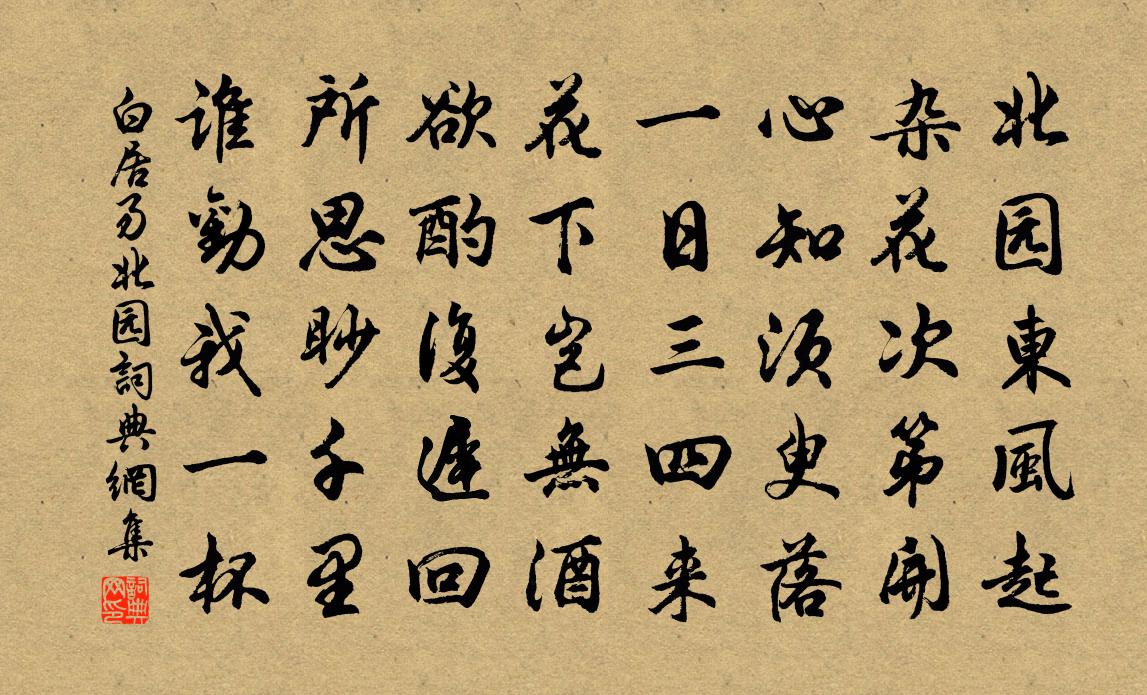 北园東風起
杂花次第開
心知須臾落
一日三四来
花下豈無酒
欲酌復遲回
所思眇千里
誰勸我一杯
白居易北园詞典網集
詞典
网印